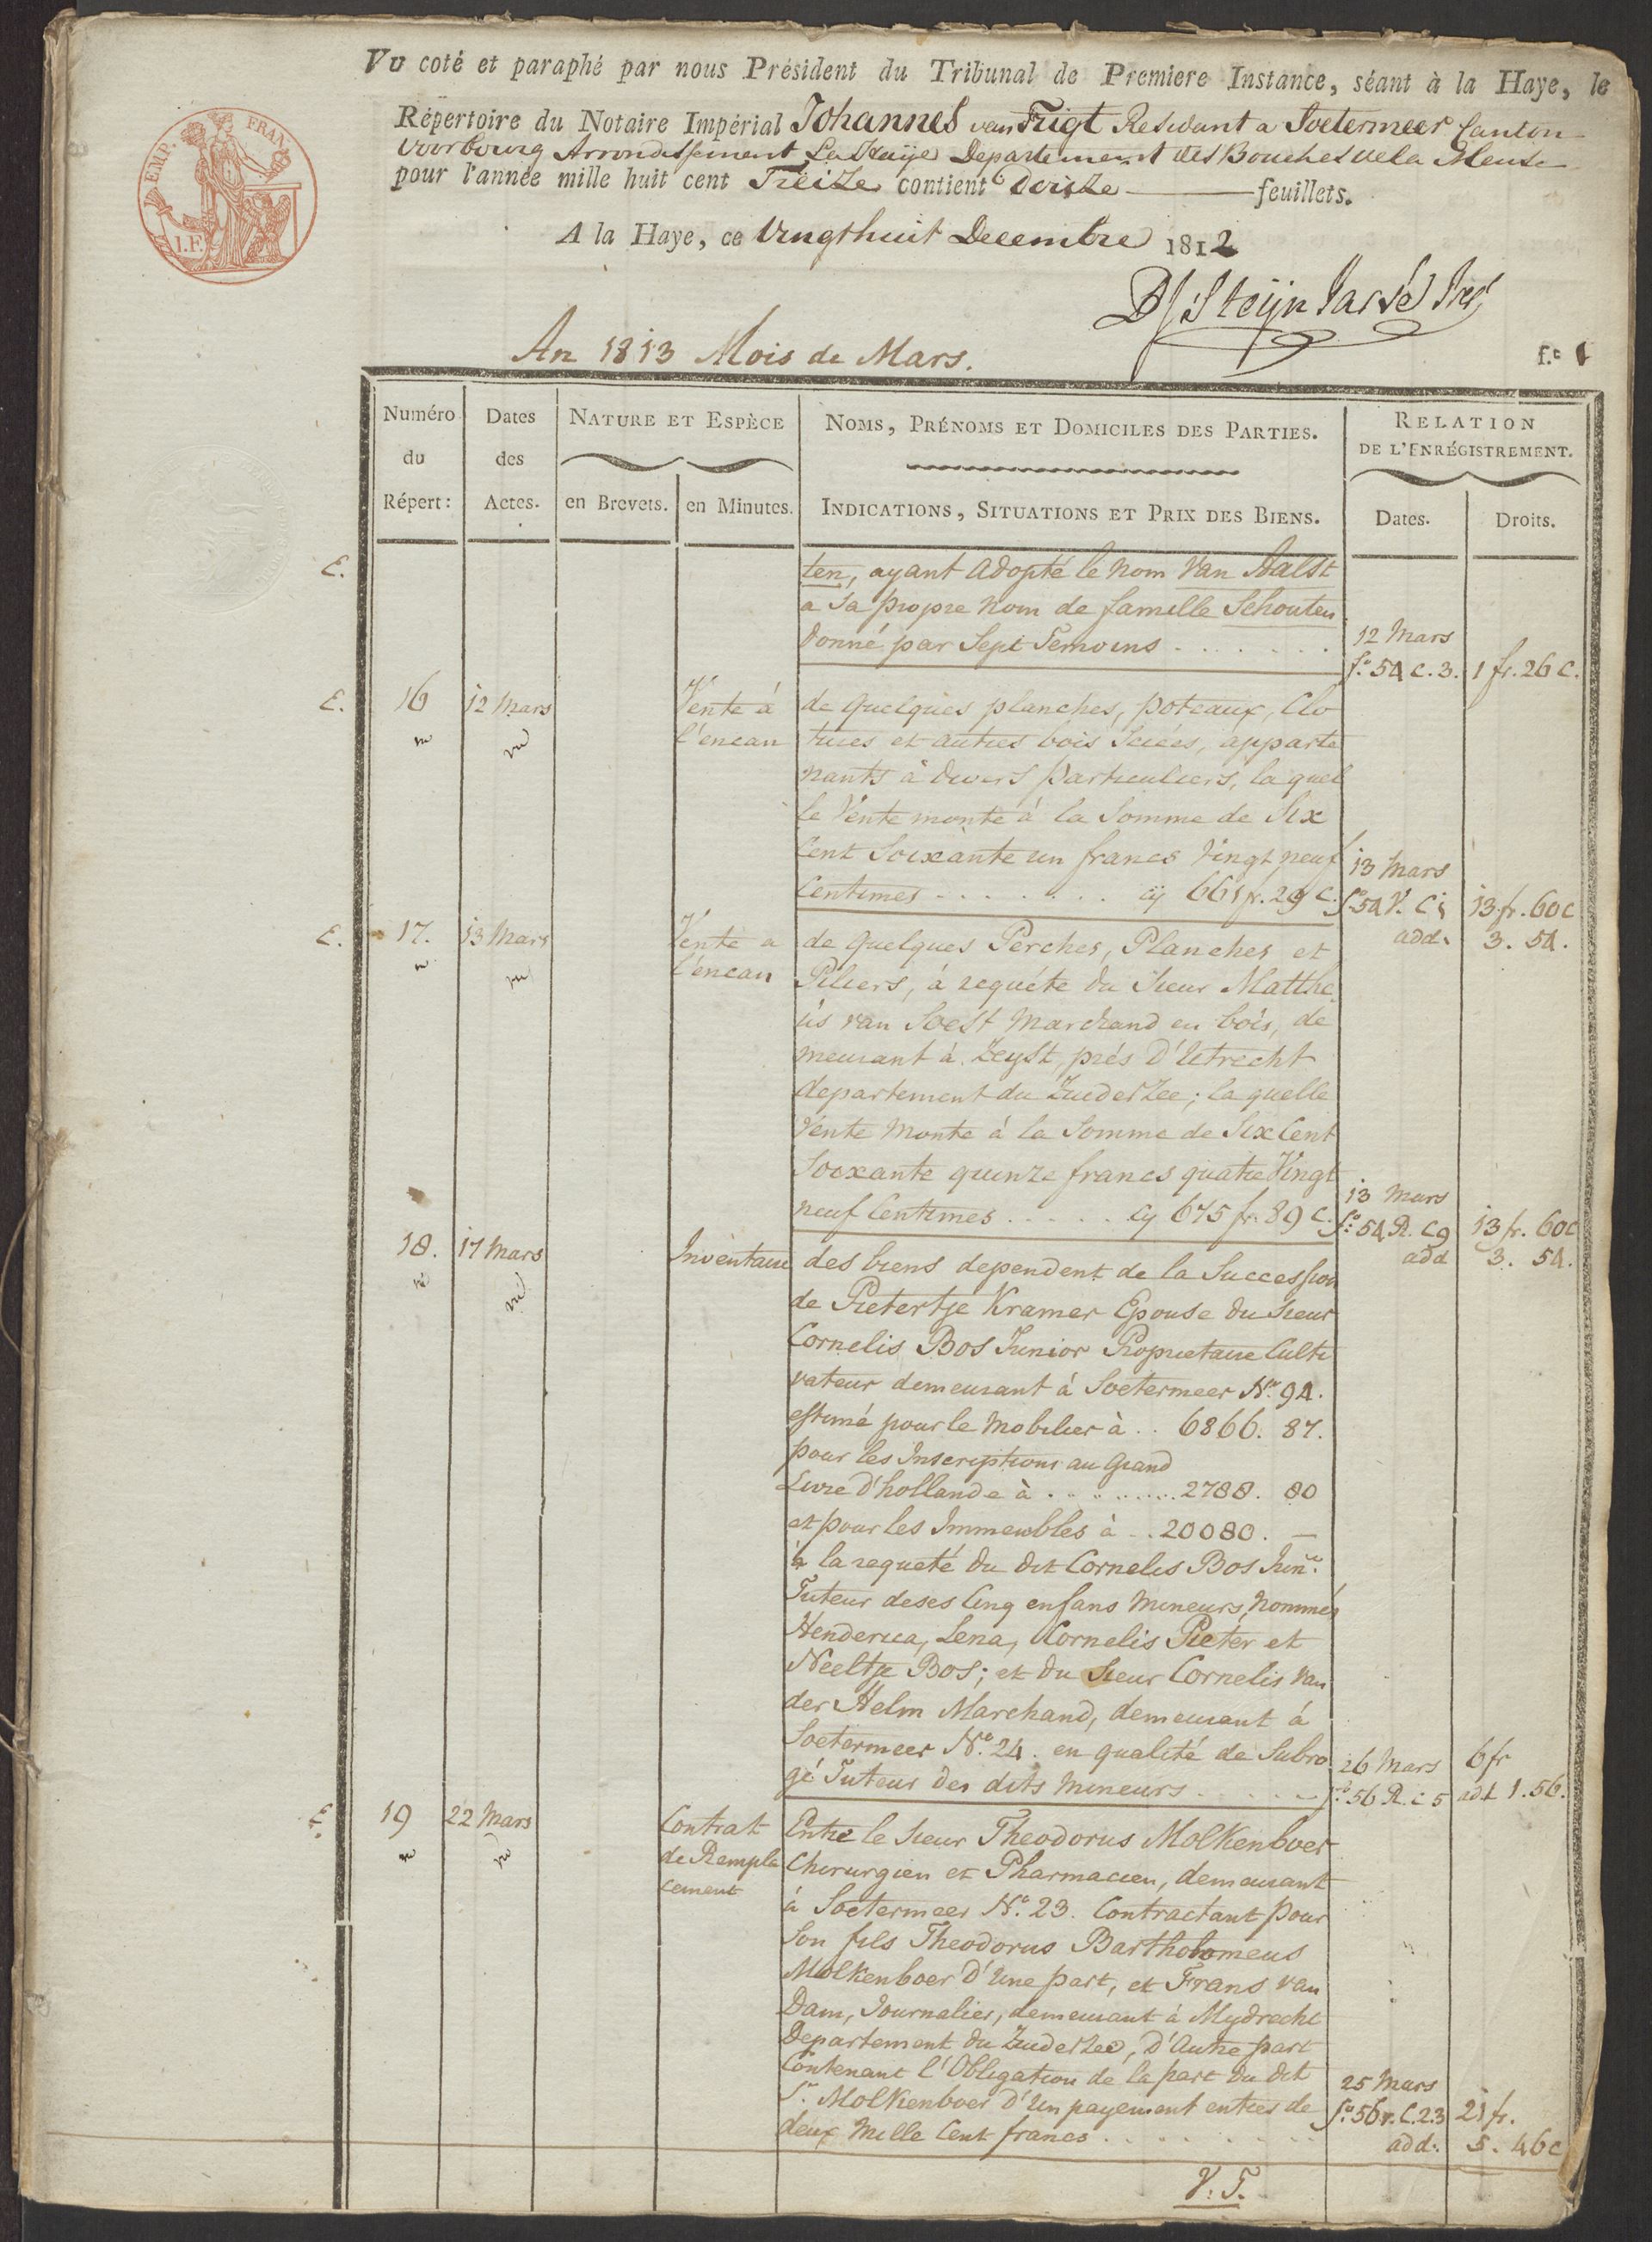 Vu coté et paraphé par nous Président du Tribunal de Premiere Instance, séant à la Haye, le
Répertoire du Notaire Impérial Johannes van Frigt Residant a Soetermeer Canton
Voorbourg Arrondissement La Haÿe Departement des Bouches de la Meuse
pour l'année mille huit cent Treize contient douze feuillets.
A la Haye, ce Vingthuit Decembre 1812
EMP. FRAN
I.F.
An 1813 Mois de Mars.
f.º 1
Numéro du Répert:
Dates des Actes.
NATURE ET ESPÈCE
en Brevets.
en Minutes.
NOMS, PRÉNOMS ET DOMICILES DES PARTIES.
INDICATIONS, SITUATIONS ET PRIX DES BIENS.
RELATION
DE L'ENRÉGISTREMENT.
Dates.
Droits.
E. ten, ayant adopté le nom Van Aalst
a sa propre nom de famille Schouten
donné par Sept Temoins . . . . . . . 12 Mars
f.º 54 C. 3. 1 fr. 26 C.
E. 16 12 Mars Vente á de quelques planches, poteaux, Clo
l'encan tures et autres bois Sciées, apparte
nants à divers particuliers, la quel
le Vente monte á la Somme de Six
Cent Soixante un francs Vingt neuf 13 Mars
Centimes . . . . . . . cÿ 661 fr. 29 C. f.º 54 V. C 1 13 fr. 60 C
add. 3. 54.
E. 17. 13 Mars Vente a de quelques Perches, Planches et
l'encan Piliers, á requéte du Sieur Matthe
us van Soest Marchand en bois, de
meurant à Zeyst, prés d'Utrecht
departement du Zuiderzee; la quelle
Vente monte á la Somme de Six Cent
Soixante quinze francs quatre Vingt 13 Mars
neuf Centimes . . . . . cy 675 fr. 89 C. f.º 54 R. C 9 13 fr. 60 C
add 3. 54.
18. 17 Mars Inventaire des biens dependent de la Succession
de Pietertje Kramer Epouse du Sieur
Cornelis Bos Junior Proprietaire Culti
vateur demeurant á Soetermeer N.º 94.
estimé pour le Mobilier à . . 6866. 87.
pour les Inscriptions au Grand
Livre d'hollande à . . . . . . . 2788. 80
et pour les Immeubles à . . 20080. —
à la requeté du dit Cornelis Bos Jun.r
Tuteur de ses Cinq enfans mineurs, nommés
Henderica, Lena, Cornelis Pieter et
Neeltje Bos; et du Sieur Cornelis van
der Helm Marchand, demeurant á
Soetermeer N.º 24. en qualité de Subro 26 Mars 6 fr
gé Tuteur des dits mineurs . . . . . . f.º 56 R. C 5 add 1. 56.
E. 19 22 Mars Contrat Entre le Sieur Theodorus Molkenboer
de Rempla Chirurgien et Pharmacien, demeurant
cement à Soetermeer N.º 23. Contractant pour
Son fils Theodorus Bartholomeus
Molkenboer d'une part, et Frans van
Dam, Journalier, demeurant à Mydrecht
Departement du Zuiderzee, d'autre part
Contenant l'Obligation de la part du dit 25 Mars
S.r Molkenboer d'un payement entier de f.º 56 v. C. 23 21 fr.
deux mille Cent francs . . . . . . . . add. 5. 46 C
V. T.